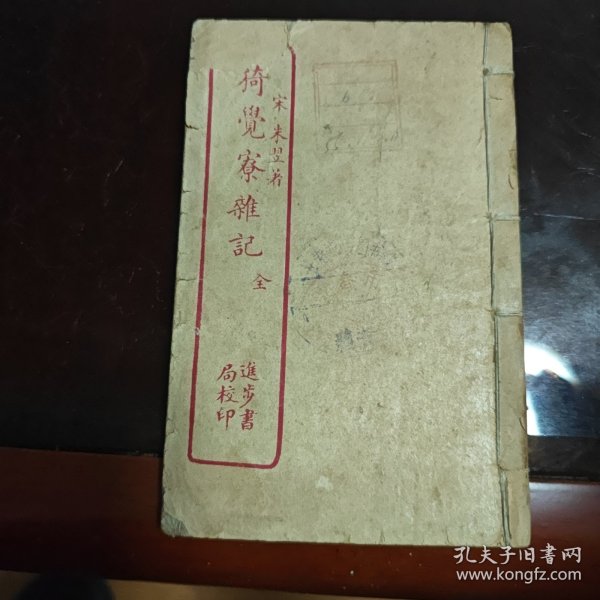 宋 朱翌著
猗覺寮雜記 全
進步書
局校印
孔夫子旧书网
www.kongfz.com